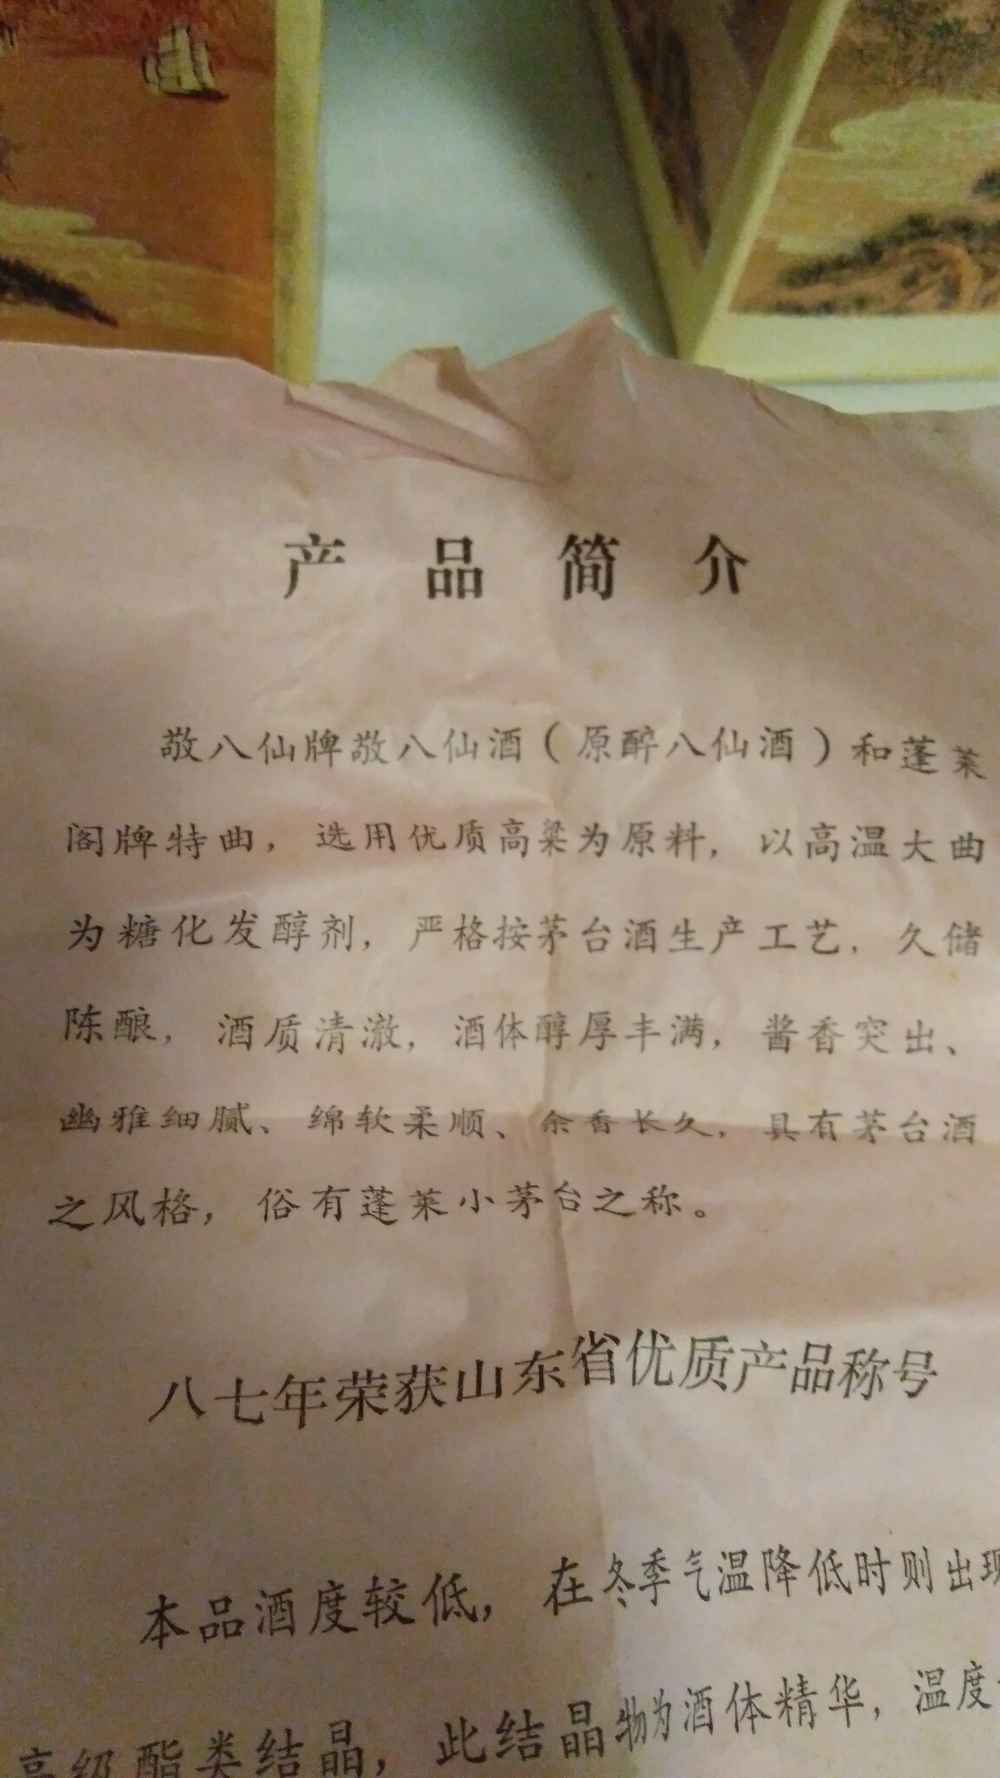 产品简介
敬八仙牌敬八仙酒（原醉八仙酒）和蓬莱
阁牌特曲，选用优质高粱为原料，以高温大曲
为糖化发醇剂，严格按茅台酒生产工艺，久储
陈酿，酒质清澈，酒体醇厚丰满，酱香突出、
幽雅细腻、绵软柔顺、余香长久，具有茅台酒
之风格，俗有蓬莱小茅台之称。
八七年荣获山东省优质产品称号
本品酒度较低，在冬季气温降低时则出现
高级酯类结晶，此结晶物为酒体精华，温度